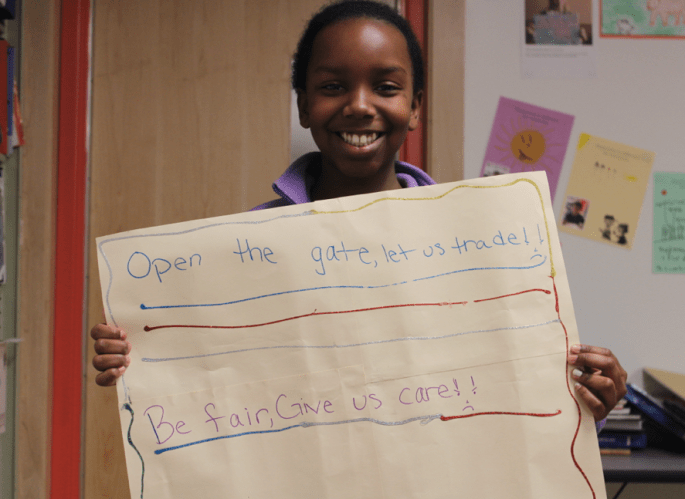 Open the gate, let us trade!!
Be fair, Give us care!!